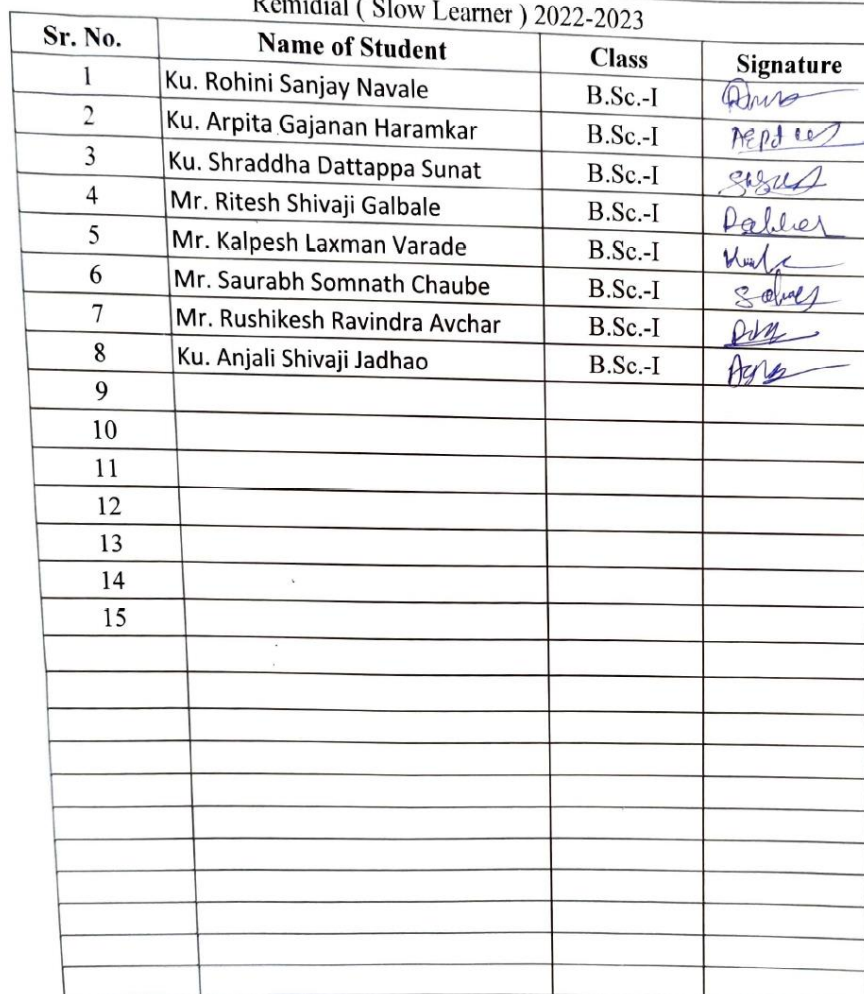 Remidial ( Slow Learner ) 2022-2023
Sr. No. Name of Student Class Signature
1 Ku. Rohini Sanjay Navale B.Sc.-I
2 Ku. Arpita Gajanan Haramkar B.Sc.-I
3 Ku. Shraddha Dattappa Sunat B.Sc.-I
4 Mr. Ritesh Shivaji Galbale B.Sc.-I
5 Mr. Kalpesh Laxman Varade B.Sc.-I
6 Mr. Saurabh Somnath Chaube B.Sc.-I
7 Mr. Rushikesh Ravindra Avchar B.Sc.-I
8 Ku. Anjali Shivaji Jadhao B.Sc.-I
9
10
11
12
13
14
15